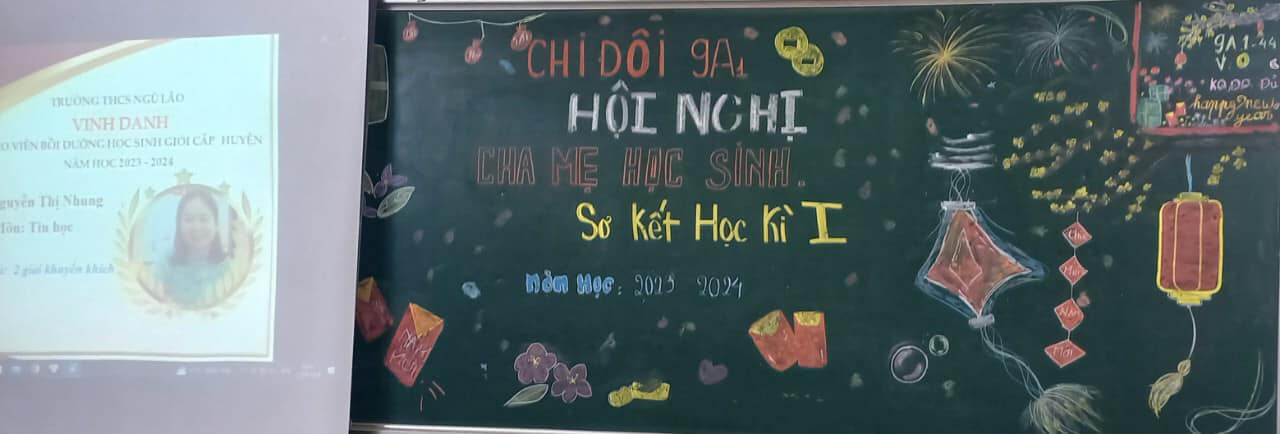 TRƯỜNG THCS NGŨ LÃO
VINH DANH
VIÊN BỒI DƯỠNG HỌC SINH GIỎI CẤP HUYỆN
NĂM HỌC 2023 - 2024
guyễn Thị Nhung
Môn: Tin học
2 giải khuyến khích
CHI ĐÔI 9A1
HỘI NGHỊ
CHA MẸ HỌC SINH.
Sơ kết Học Kì I
Năm Học: 2023 2024
Chúc
Mừng
Năm
Mới
9A1-44
happy new
year